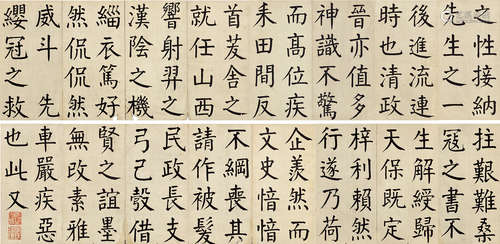 之性接納
先生之一
後進流連
時也清政
晉亦值多
神識不驚
而高位疾
耒田間反
首茇舍之
就任山西
響射羿之
漢陰之機
緇衣篤好
然侃侃然
威斗 先
纓冠之救
拄艱難桑
寇之書不
生解綬歸
天保既定
梓利賴然
行遂乃荷
企羨然而
文史愔愔
不綱喪其
請作被髮
民政長支
弓己彀借
賢之誼墨
無改素雅
車嚴疾惡
也此又